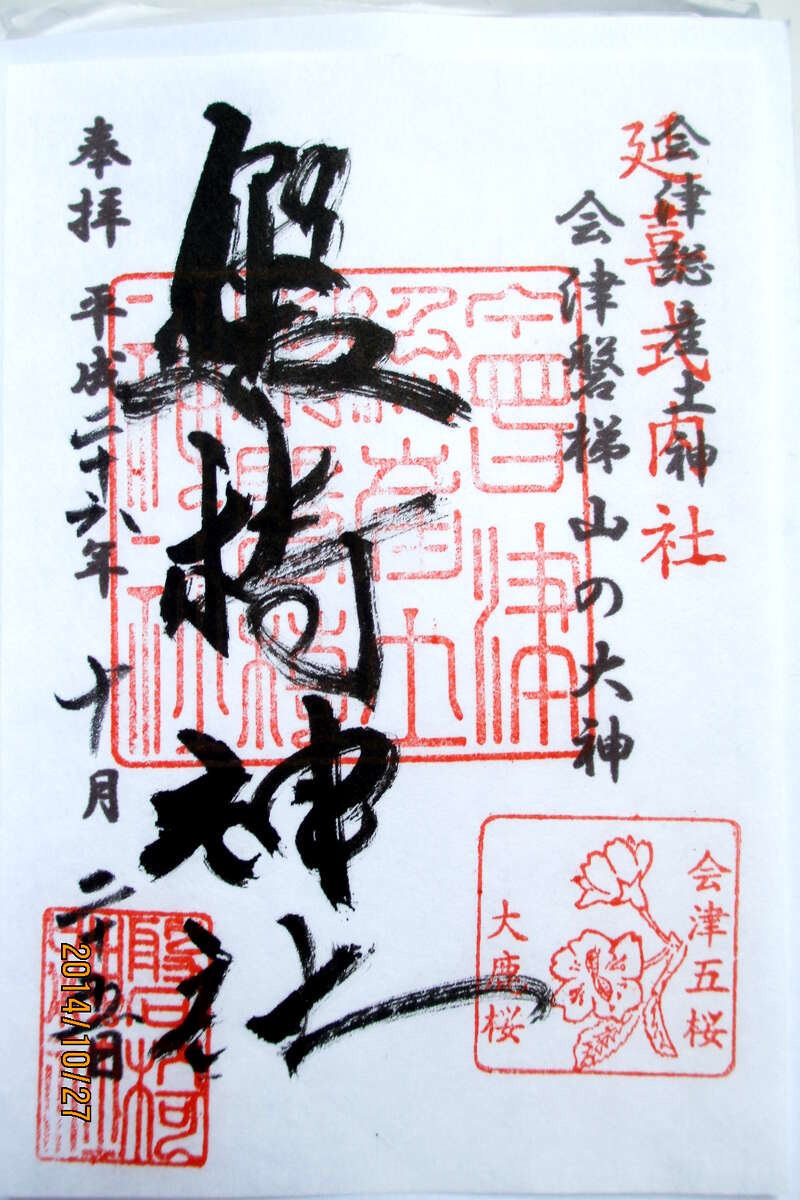 延喜式内社
会津総産土神
会津磐梯山の大神
磐椅神社
奉拝 平成二十六年 十月 二十五日
會津
總産土
会津五桜
大鹿桜
磐椅
2014/10/27